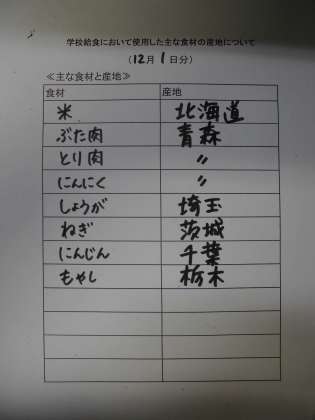 学校給食において使用した主な食材の産地について
(12月 1日分)
≪主な食材と産地≫
食材 産地
米 北海道
ぶた肉 青森
とり肉 〃
にんにく 〃
しょうが 埼玉
ねぎ 茨城
にんじん 千葉
もやし 栃木